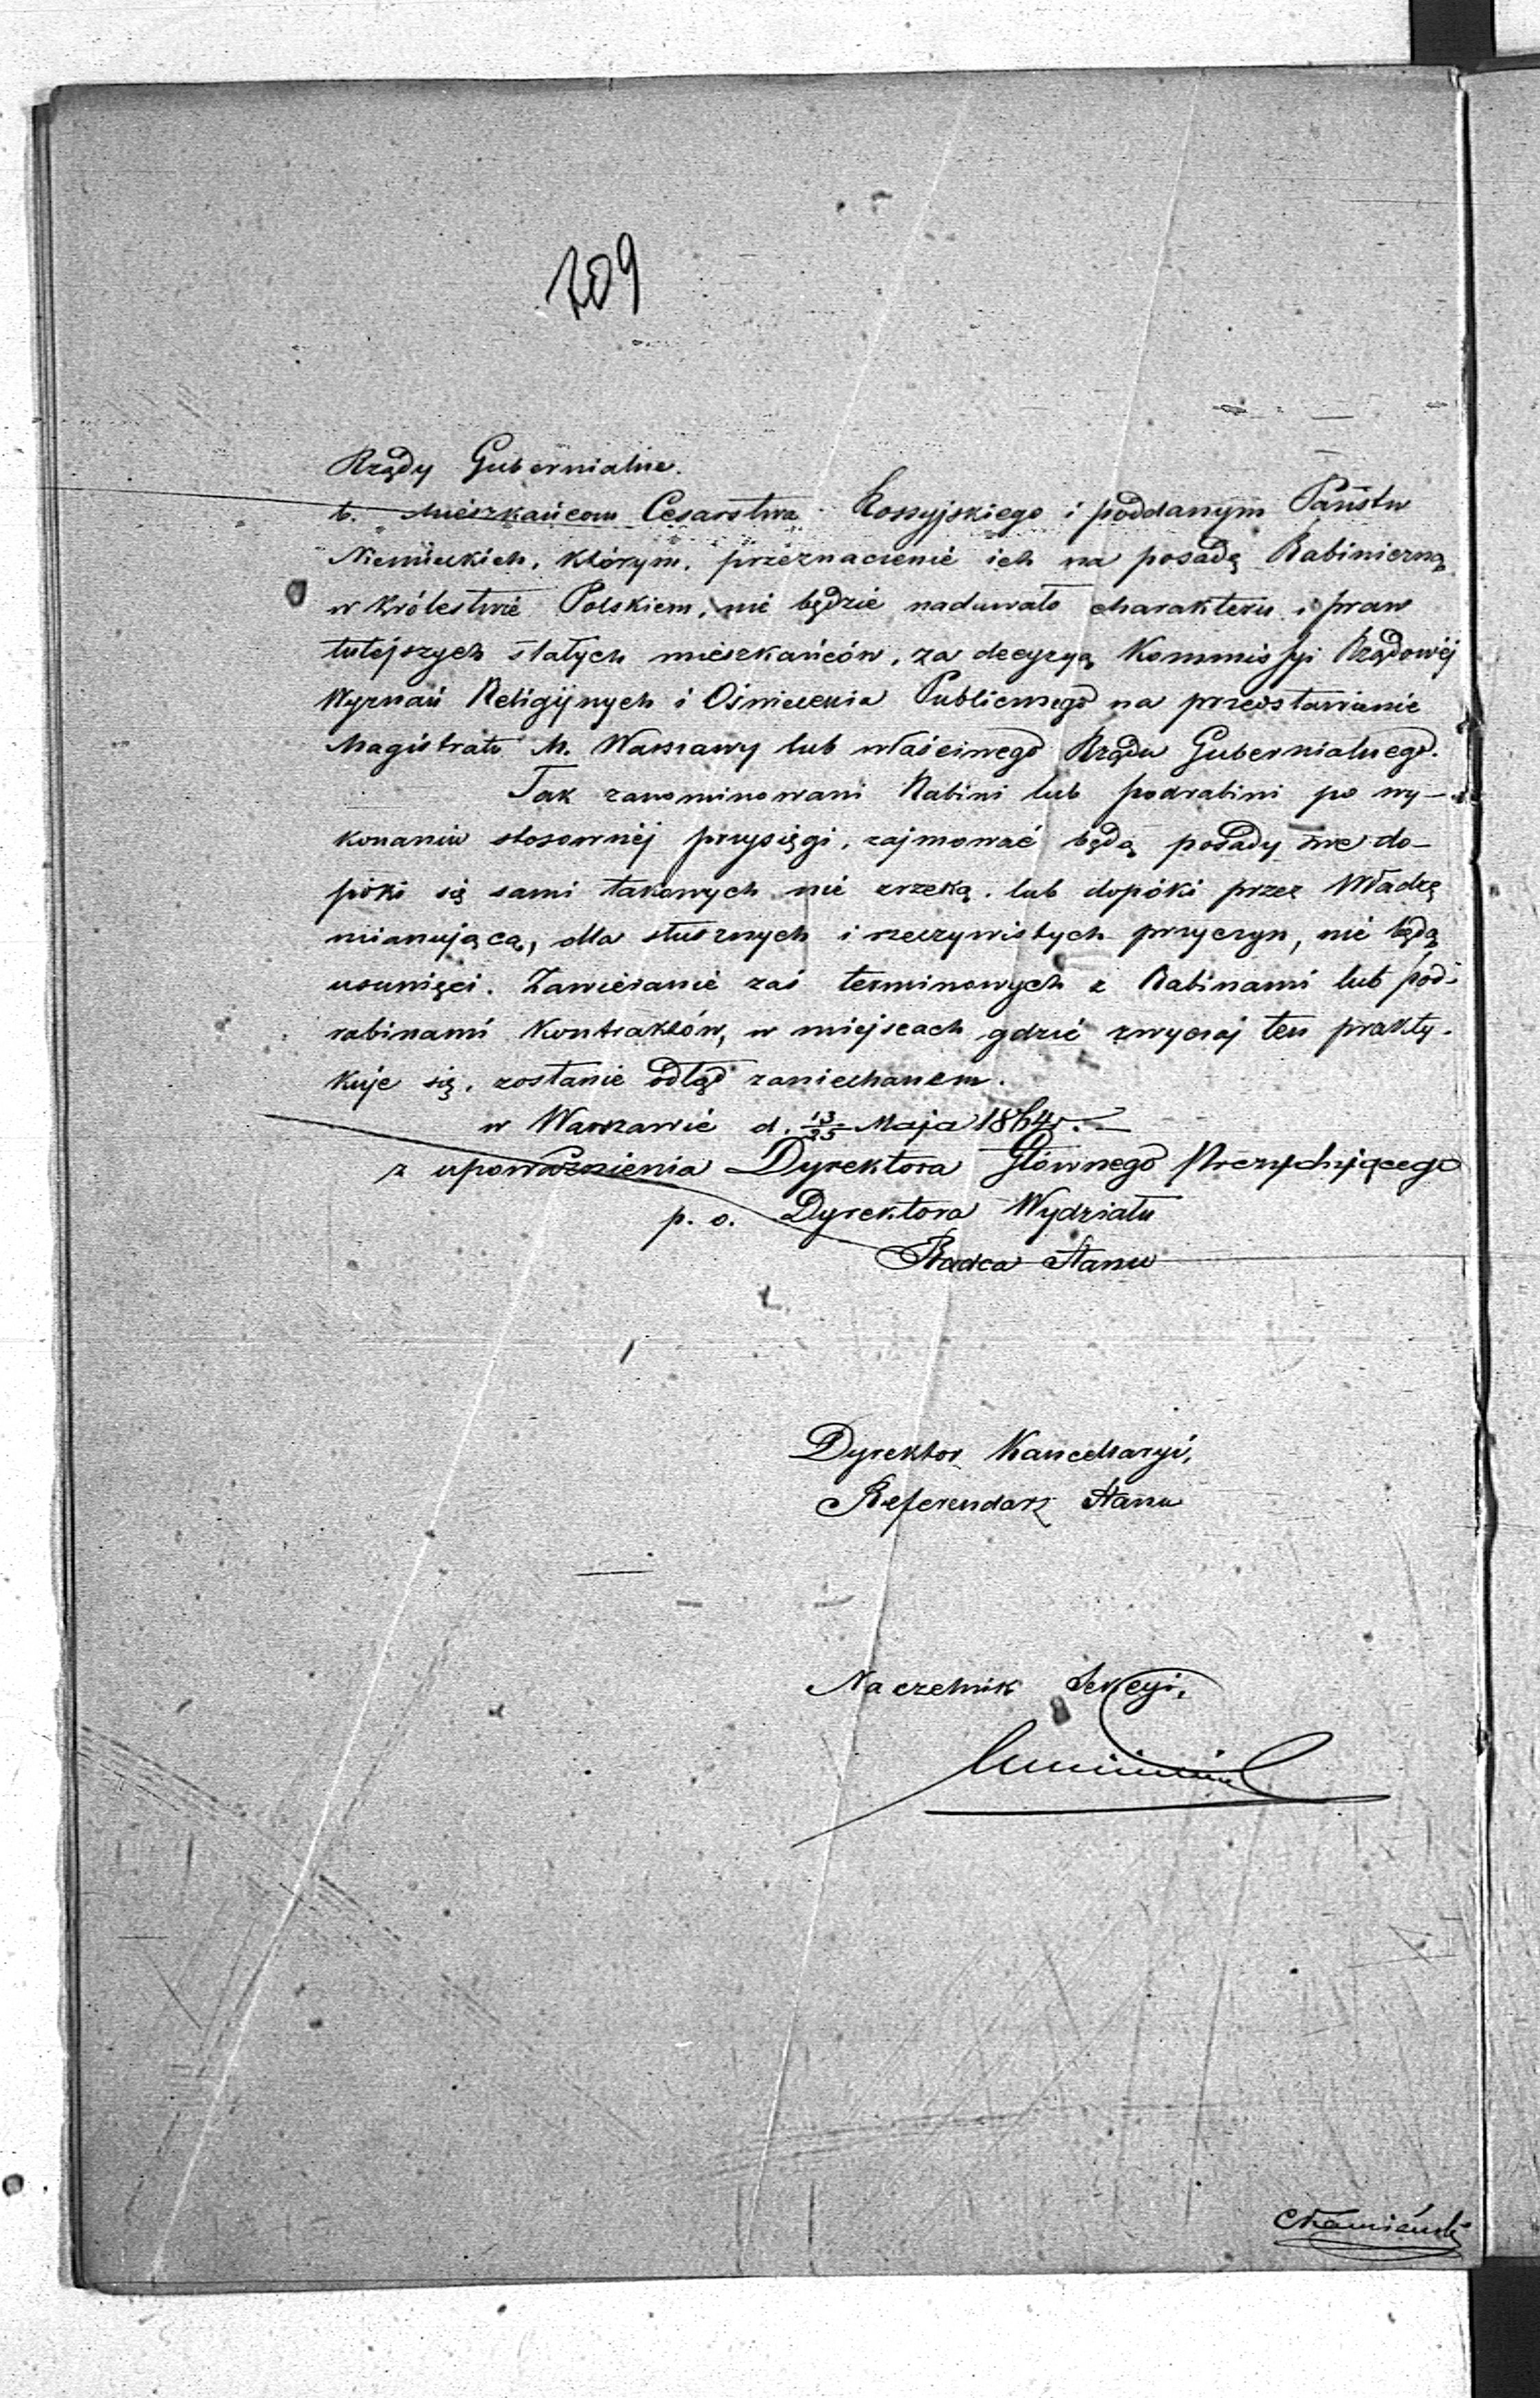 209
Rządy Gubernialne.
b. Mieszkańcom Cesarstwa Rossyjskiego i poddanym Państw
Niemieckich, którym, przeznaczenie ich na posadę Rabiniczną
w Królestwie Polskiem, nie będzie nadawało charakteru i praw
tutejszych stałych mieszkańców, za decyzyą Kommissyi Rządowéj
Wyznań Religijnych i Oświecenia Publicznego na przedstawienie
Magistratu M. Warszawy lub właściwego Rządu Gubernialnego.
Tak zanominowani Rabini lub podrabini po wy-
konaniu stosownéj przysięgi, zajmować będą posady swe do-
póki się sami takowych nie zrzeką, lub dopóki przez Władzę
mianującą, dla słusznych i rzeczywistych przyczyn, nie będą
usunięci. Zawieranie zaś terminowych z Rabinami lub pod-
rabinami Kontraktów, w miejscach gdzie zwyczaj ten prakty-
kuje się, zostanie odtąd zaniechanem.
w Warszawie d. 13/25 Maja 1864 r.
z upoważnienia Dyrektora Głównego Prezydującego
p. o. Dyrektora Wydziału
Radca Stanu
Dyrektor Kancellaryi,
Referendarz Stanu
Naczelnik Sekcyi,